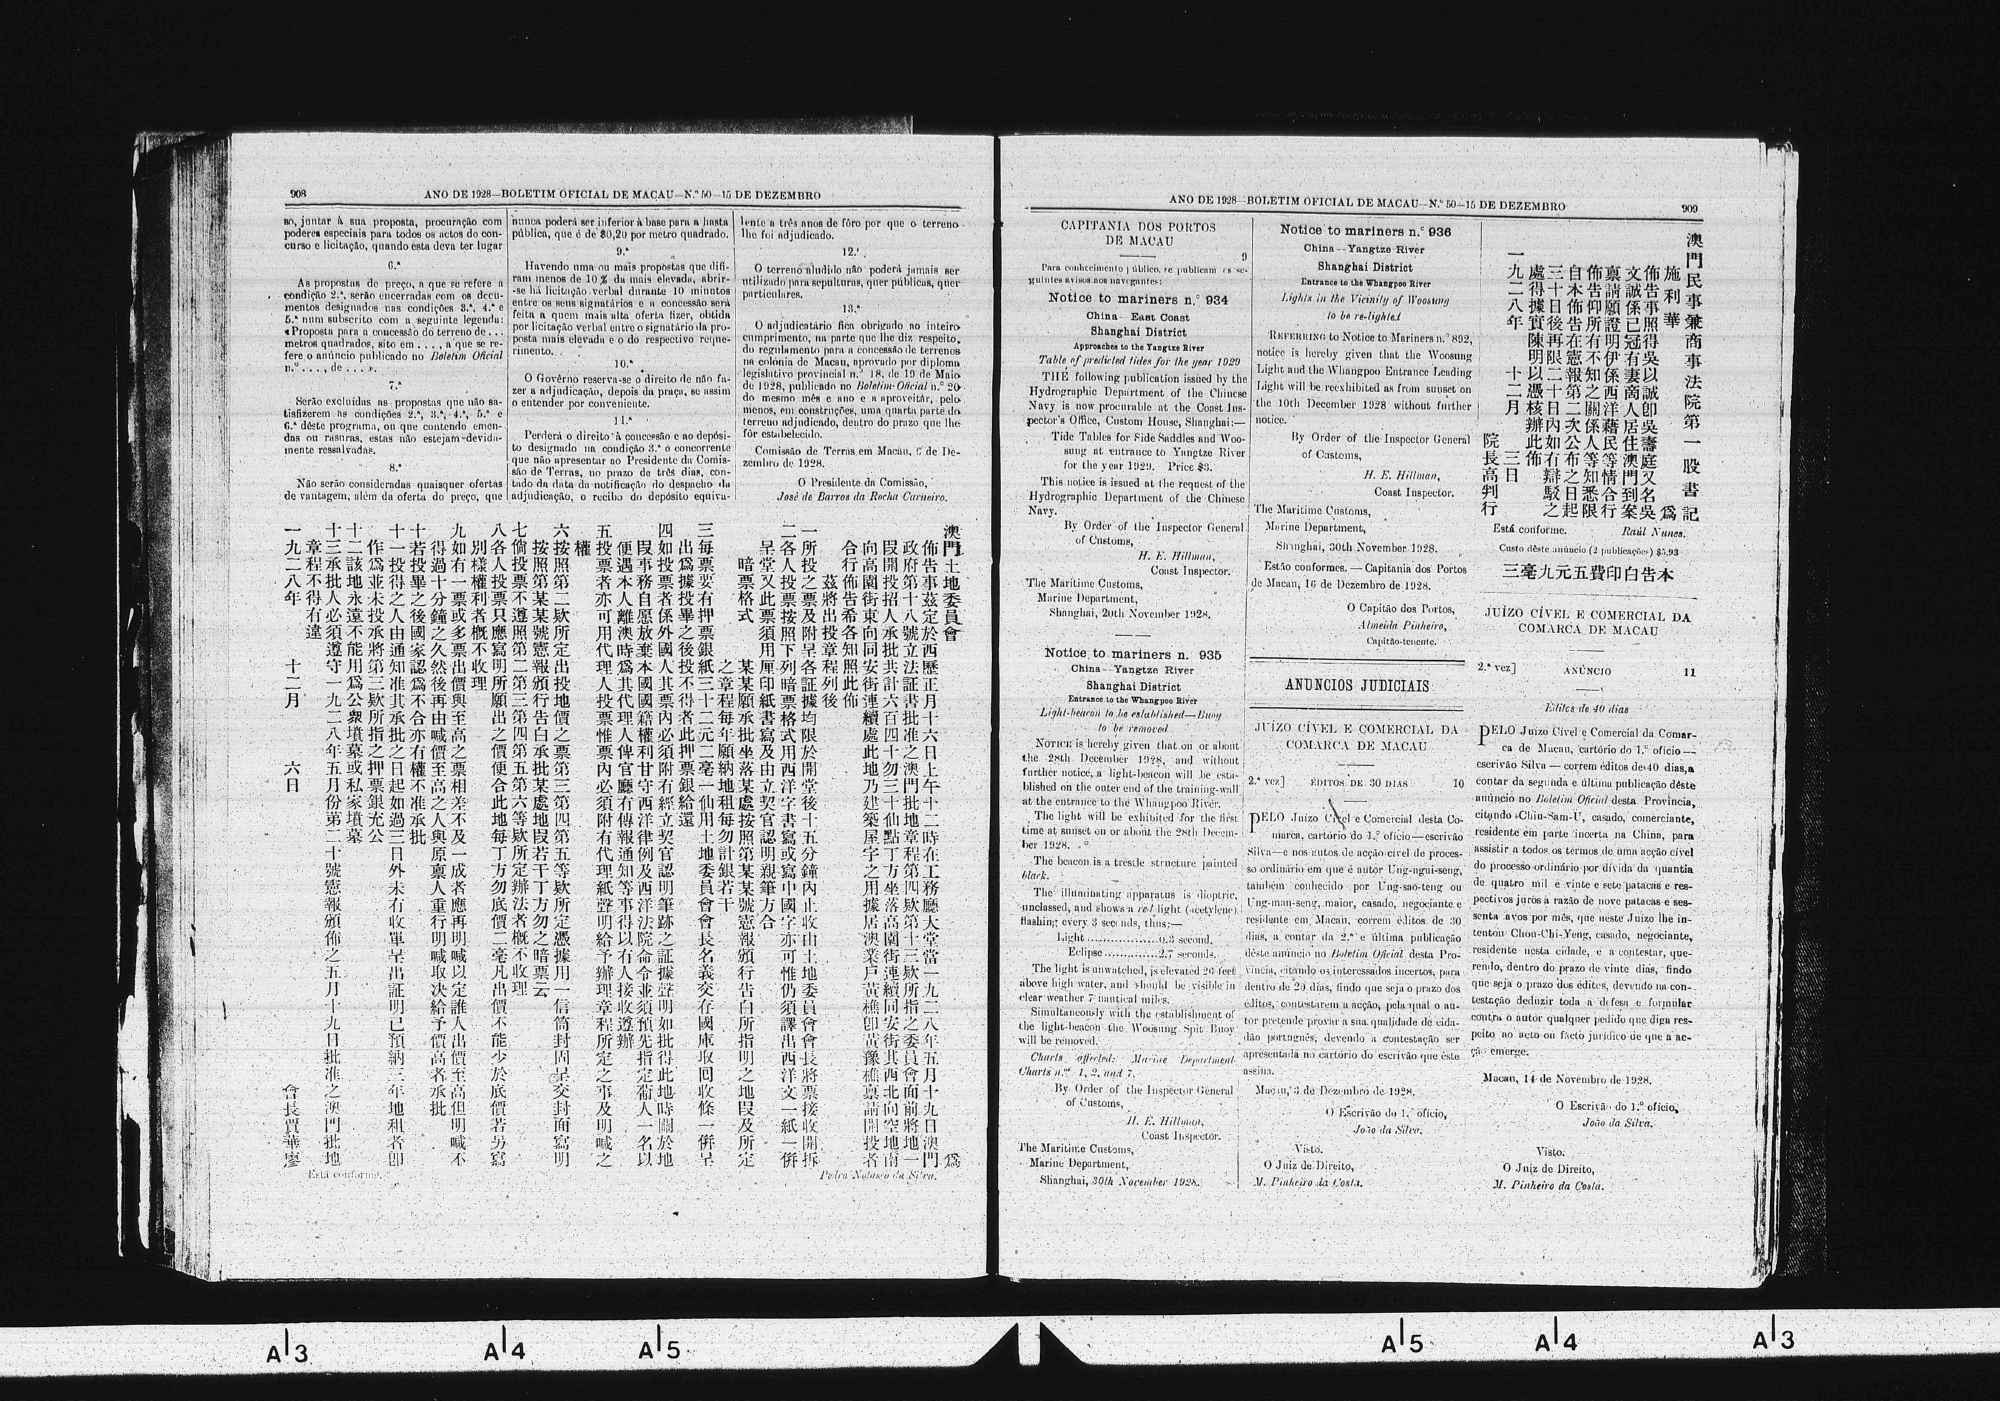 908
ANO DE 1928—BOLETIM OFICIAL DE MACAU—N.º 50—15 DE DEZEMBRO
so, juntar à sua proposta, procuração com
poderes especiais para todos os actos do con-
curso e licitação, quando esta deva ter lugar
6.ª
As propostas de preço, a que se refere a
condição 2.ª, serão encerradas com os docu-
mentos designados nas condições 3.ª, 4.ª e
5.ª num subscrito com a seguinte legenda:
«Proposta para a concessão do terreno de...
metros quadrados, sito em ...., a que se re-
fere o anúncio publicado no Boletim Oficial
n.º ...., de ...».
7.ª
Serão excluídas as propostas que não sa-
tisfizerem as condições 2.ª, 3.ª, 4.ª, 5.ª e
6.ª dêste programa, ou que contendo emen-
das ou rasuras, estas não estejam devida-
mente ressalvadas.
8.ª
Não serão consideradas quaisquer ofertas
de vantagem, além da oferta do preço, que
nunca poderá ser inferior à base para a hasta
pública, que é de $0,20 por metro quadrado.
9.ª
Havendo uma ou mais propostas que difi-
ram menos de 10 % da mais elevada, abrir-
-se há licitação verbal durante 10 minutos
entre os seus signatários e a concessão será
feita a quem mais alta oferta fizer, obtida
por licitação verbal entre o signatário da pro-
posta mais elevada e o do respectivo reque-
rimento.
10.ª
O Govêrno reserva-se o direito de não fa-
zer a adjudicação, depois da praça, se assim
o entender por conveniente.
11.ª
Perderá o direito à concessão e ao depósi-
to designado na condição 3.ª o concorrente
que não apresentar ao Presidente da Comis-
são de Terras, no prazo de três dias, con-
tado da data da notificação do despacho da
adjudicação, o recibo do depósito equiva-
lente a três anos de fôro por que o terreno
lhe foi adjudicado.
12.ª
O terreno aludido não poderá jamais ser
utilizado para sepulturas, quer públicas, quer
particulares.
13.ª
O adjudicatário fica obrigado ao inteiro
cumprimento, na parte que lhe diz respeito,
do regulamento para a concessão de terrenos
na colónia de Macau, aprovado por diploma
legislativo provincial n.º 18, de 19 de Maio
de 1928, publicado no Boletim Oficial n.º 20
do mesmo mês e ano e a aproveitar, pelo
menos, em construções, uma quarta parte do
terreno adjudicado, dentro do prazo que lhe
fôr estabelecido.
Comissão de Terras em Macau, 6 de De-
zembro de 1928.
O Presidente da Comissão,
José de Barros da Rocha Carneiro.
澳門土地委員會 爲
佈告事茲定於西歷正月十六日上午十二時在工務廳大堂當一九二八年五月十九日澳門
政府第十八號立法証書批准之澳門批地章程第四欵第十三欵所指之委員會面前將地一
叚開投招人承批共計六百四十勿三十仙點丁方坐落高園街連續同安街其西北向空地南
向高園街東向同安街連續處此地乃建築屋宇之用據居澳業戶黃樵卽黃豫樵禀請開投者
合行佈告希各知照此佈
茲將出投章程列後
一所投之票及附呈各証據均限於開堂後十五分鐘內止收由土地委員會會長將票接收開拆
二各人投票按照下列暗票格式用西洋字書寫或寫中國字亦可惟仍須譯出西洋文一紙一併
呈堂又此票須用厘印紙書寫及由立契官認明親筆方合
暗票格式 某某願承批坐落某處按照第某某號憲報頒行告白所指明之地叚及所定
之章程每年願納地租每勿計銀若干
三每票要有押票銀紙三十二元二毫一仙用土地委員會會長名義交存國庫取回收條一併呈
出爲據投畢之後投不得者此押票銀給還
四如投票者係外國人其票內必須附有經立契官認明筆跡之証據聲明如批得此地時關於地
叚事務自愿放棄本國國籍權利甘守西洋律例及西洋法院命令並須預先指定一名以
便遇本人離澳時爲其代理人俾官廳有傳報通知等事得以有人接收遵辦
五投票者亦可用代理人投票惟票內必須附有代理紙聲明給予辦理章程所定之事及明喊之
權
六按照第二欵所定出投地價之票第三第四第五等欵所定憑據用一信筒封固呈交封面寫明
按照第某某號憲報頒行告白承批某處地叚若干丁方勿之暗票云
七倘投票不遵照第二第三第四第五第六等欵所定辦法者概不收理
八各人投票只應寫明所願出之價便合此地每丁方勿底價二毫凡出價不能少於底價若另寫
別樣權利者概不收理
九如有一票或多票出價與至高之票相差不及一成者應再明喊以定誰人出價至高但明喊不
得過十分鐘之久然後再由喊價至高之人與原禀人重行明喊取決給予價高者承批
十若投畢之後國家認爲不合亦有權不准承批
十一投得之人由通知准其承批之日起如過三日外未有收單呈出証明已預納三年地租者卽
作爲並未投承將第三欵所指之押票銀充公
十二該地永遠不能用爲公衆墳墓或私家墳墓
十三承批人必須遵守一九二八年五月份第二十號憲報頒佈之五月十九日批准之澳門批地
章程不得有違
一九二八年 十二月 六日 會長賈華廖
Está conforme. Pedro Nolasco da Silva.
ANO DE 1928—BOLETIM OFICIAL DE MACAU—N.º 50—15 DE DEZEMBRO
909
CAPITANIA DOS PORTOS
DE MACAU
9
Para conhecimento público, se publicam os se-
guintes avisos aos navegantes:
Notice to mariners n.º 934
China—East Coast
Shanghai District
Approaches to the Yangtze River
Table of predicted tides for the year 1929
THE following publication issued by the
Hydrographic Department of the Chinese
Navy is now procurable at the Coast Ins-
pector's Office, Custom House, Shanghai:—
Tide Tables for Side Saddles and Woo-
sung at entrance to Yangtze River
for the year 1929. Price $3.
This notice is issued at the request of the
Hydrographic Department of the Chinese
Navy.
By Order of the Inspector General
of Customs,
H. E. Hillman,
Coast Inspector.
The Maritime Customs,
Marine Department,
Shanghai, 20th November 1928.
Notice to mariners n. 935
China—Yangtze River
Shanghai District
Entrance to the Whangpoo River
Light-beacon to be established—Buoy
to be removed
NOTICE is hereby given that on or about
the 28th December 1928, and without
further notice, a light-beacon will be esta-
blished on the outer end of the training-wall
at the entrance to the Whangpoo River.
The light will be exhibited for the first
time at sunset on or about the 28th Decem-
ber 1928.
The beacon is a trestle structure painted
black.
The illuminating apparatus is dioptric,
unclassed, and shows a red light (acetylene)
flashing every 3 seconds, thus:—
Light ................. 0.3 second.
Eclipse .............. 2.7 seconds.
The light is unwatched, is elevated 26 feet
above high water, and should be visible in
clear weather 7 nautical miles.
Simultaneously with the establishment of
the light-beacon the Woosung Spit Buoy
will be removed.
Charts affected: Marine Department
Charts n.os 1, 2, and 7.
By Order of the Inspector General
of Customs,
H. E. Hillman,
Coast Inspector.
The Maritime Customs,
Marine Department,
Shanghai, 30th November 1928.
Notice to mariners n.º 936
China—Yangtze River
Shanghai District
Entrance to the Whangpoo River
Lights in the Vicinity of Woosung
to be re-lighted
REFERRING to Notice to Mariners n.º 892,
notice is hereby given that the Woosung
Light and the Whangpoo Entrance Leading
Light will be reexhibited as from sunset on
the 10th December 1928 without further
notice.
By Order of the Inspector General
of Customs,
H. E. Hillman,
Coast Inspector.
The Maritime Customs,
Marine Department,
Shanghai, 30th November 1928.
Estão conformes.—Capitania dos Portos
de Macau, 16 de Dezembro de 1928.
O Capitão dos Portos,
Almeida Pinheiro,
Capitão-tenente.
ANÚNCIOS JUDICIAIS
JUÍZO CÍVEL E COMERCIAL DA
COMARCA DE MACAU
2.ª vez] ÉDITOS DE 30 DIAS 10
PELO Juízo Cível e Comercial desta Co-
marca, cartório do 1.º ofício—escrivão
Silva—e nos autos de acção cível de proces-
so ordinário em que é autor Ung-ngui-seng,
também conhecido por Ung-sao-teng ou
Ung-man-seng, maior, casado, negociante e
residente em Macau, correm éditos de 30
dias, a contar da 2.ª e última publicação
dêste anúncio no Boletim Oficial desta Pro-
víncia, citando os interessados incertos, para
dentro de 20 dias, findo que seja o prazo dos
éditos, contestarem a acção, pela qual o au-
tor pretende provar a sua qualidade de cida-
dão português, devendo a contestação ser
apresentada no cartório do escrivão que êste
assina.
Macau, 3 de Dezembro de 1928.
O Escrivão do 1.º ofício,
João da Silva.
Visto.
O Juiz de Direito,
M. Pinheiro da Costa.
澳門民事兼商事法院第一股書記
施利華 爲
佈告事照得吳以誠卽吳壽庭又名吳
文誠係已冠有妻商人居住澳門到案
禀請願證明伊係西洋藉民等情合行
佈告仰所有不知之關係人等知悉限
自本佈告在憲報第二次公布之日起
三十日後再限二十日內如有辯駁之
處得據實陳明以憑核辦此佈
一九二八年 十二月 三日
院長高判行
Está conforme. Raúl Nunes.
Custo dêste anúncio (2 publicações) $5,93
三毫九元五費印白告本
JUÍZO CÍVEL E COMERCIAL DA
COMARCA DE MACAU
2.ª vez] ANÚNCIO 11
Éditos de 40 dias
PELO Juízo Cível e Comercial da Comar-
ca de Macau, cartório do 1.º ofício—
escrivão Silva—correm éditos de 40 dias, a
contar da segunda e última publicação dêste
anúncio no Boletim Oficial desta Província,
citando Chiu-Sam-U, casado, comerciante,
residente em parte incerta na China, para
assistir a todos os termos de uma acção cível
do processo ordinário por dívida da quantia
de quatro mil e vinte e sete patacas e res-
pectivos juros à razão de nove patacas e ses-
senta avos por mês, que neste Juízo lhe in-
tentou Chou-Chi-Yeng, casado, negociante,
residente nesta cidade, e a contestar, que-
rendo, dentro do prazo de vinte dias, findo
que seja o prazo dos éditos, devendo na con-
testação deduzir toda a defesa e formular
contra o autor qualquer pedido que diga res-
peito ao acto ou facto jurídico de que a ac-
ção emerge.
Macau, 14 de Novembro de 1928.
O Escrivão do 1.º ofício,
João da Silva.
Visto.
O Juiz de Direito,
M. Pinheiro da Costa.
A 3
A 4
A 5
A 5
A 4
A 3